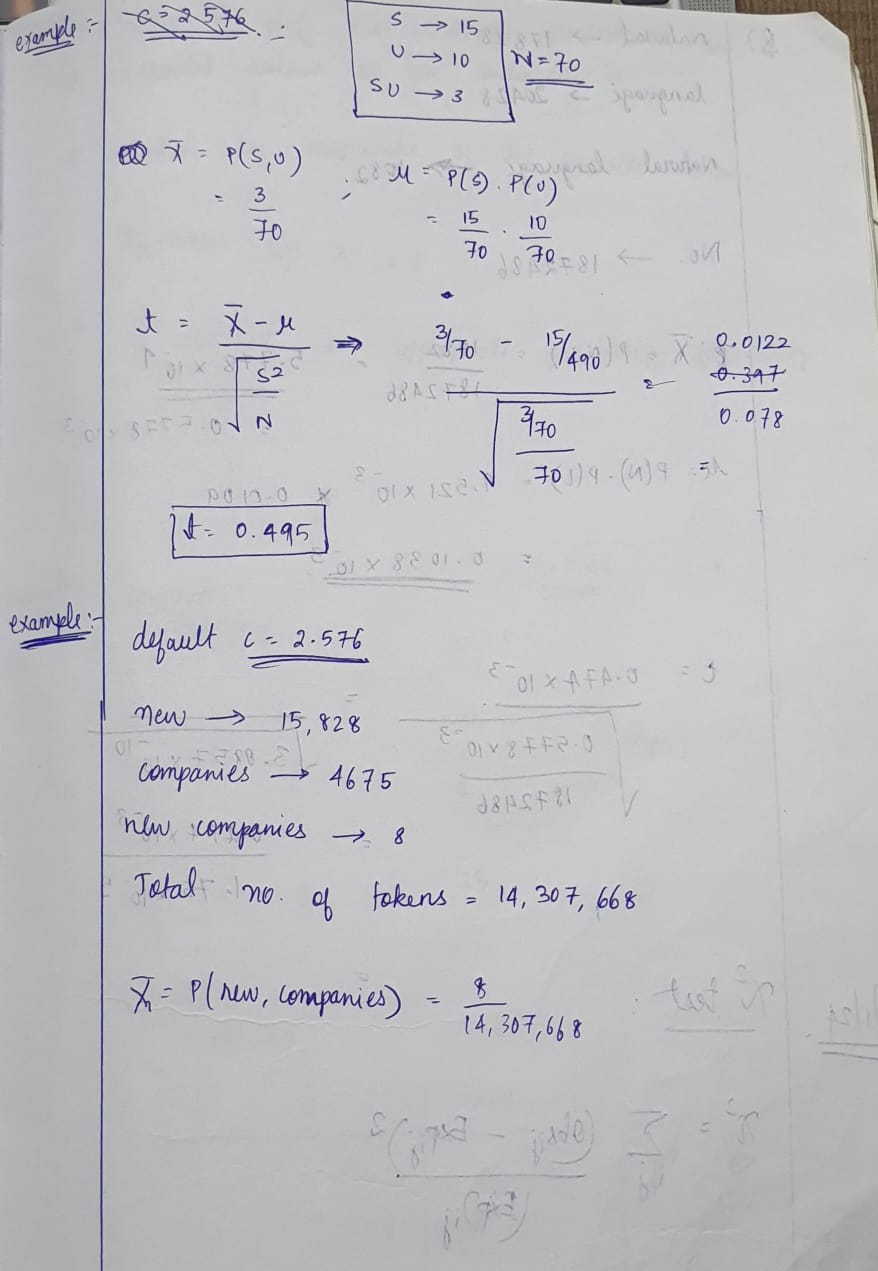 example :- C = 2.576 :
S → 15
U → 10
SU → 3
N = 70
x̄ = P(S,U) ; μ = P(S) . P(U)
= 3/70 = 15/70 . 10/70
t = (x̄ - μ) / √(S²/N) ⇒ (3/70 - 15/490) / √((3/70)/70) = 0.0122 0.397 / 0.078
t = 0.495
example :-
default C = 2.576
new → 15,828
companies → 4675
new companies → 8
Total no. of tokens = 14,307,668
x̄ = P(new, companies) = 8/14,307,668